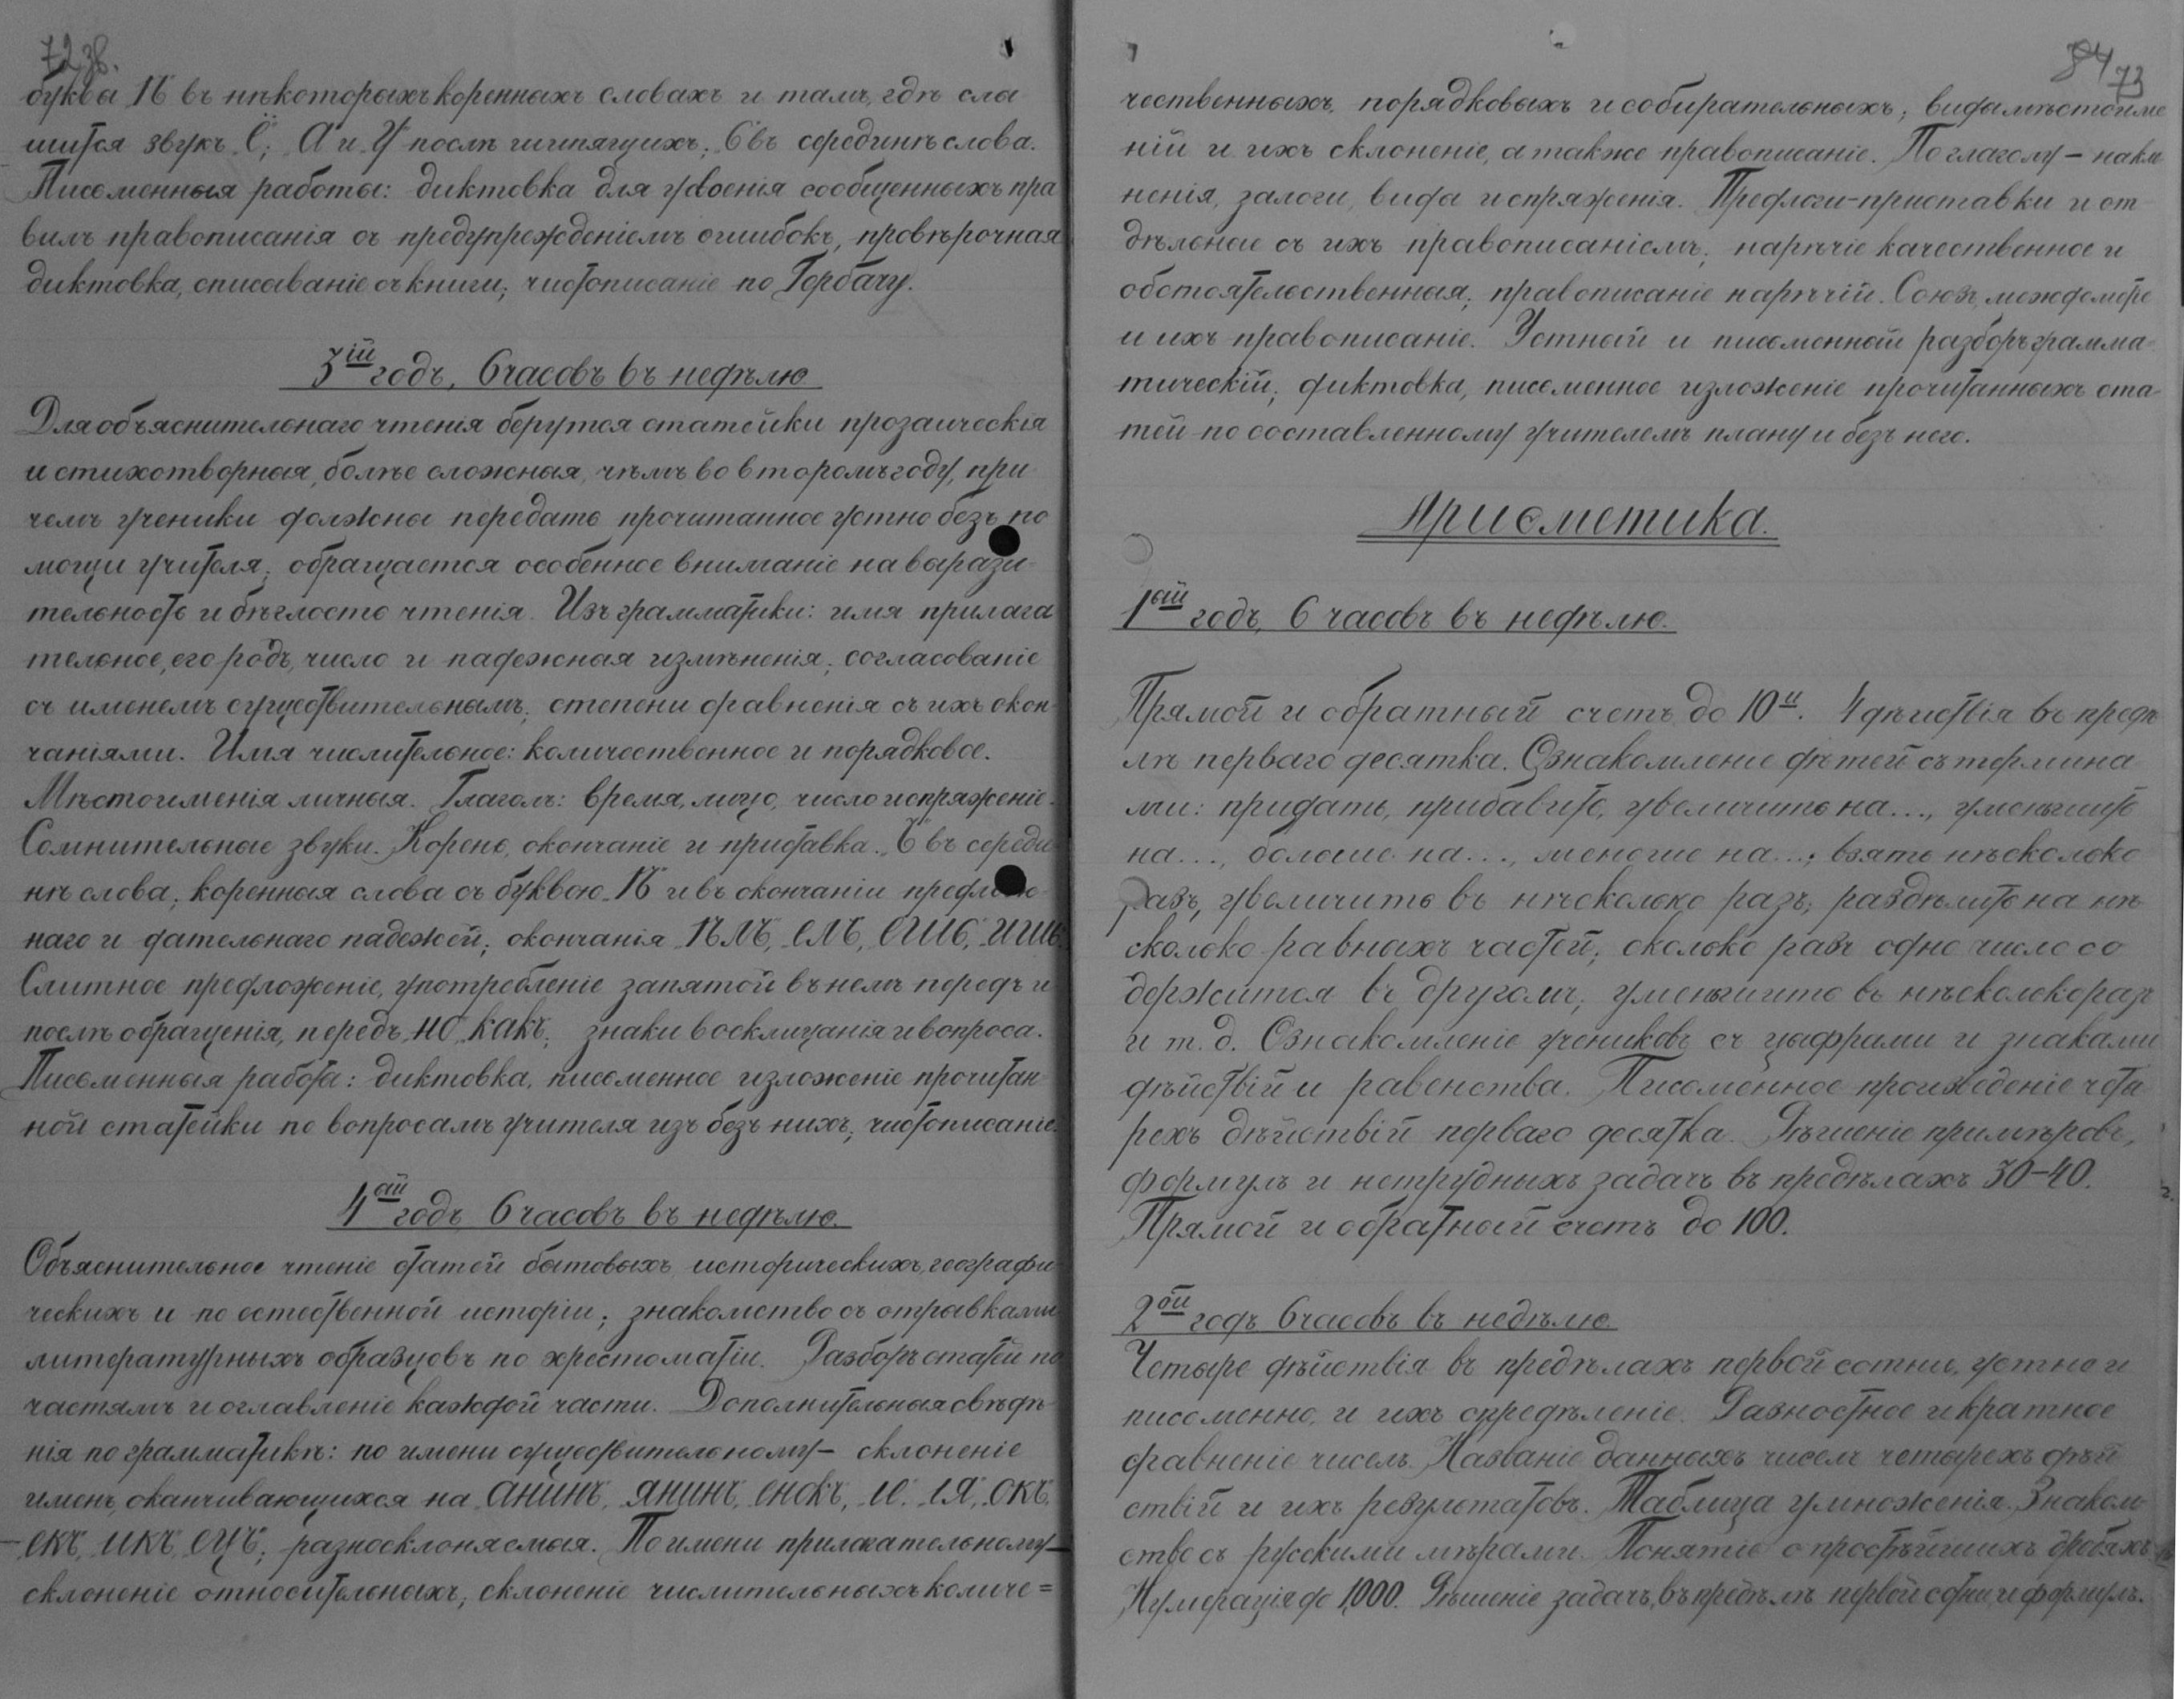 72 38.
буквы „Ѣ" въ нѣкоторыхъ коренныхъ словахъ и тамъ, гдѣ слы
шится звукъ „Ё"; „А" и „У" послѣ шипящихъ; „Ь" въ серединѣ слова.
Письменныя работы: диктовка для усвоенія сообщенныхъ пра
вилъ правописанія съ предупрежденіемъ ошибокъ, провѣрочная
диктовка, списываніе съ книги; чистописаніе по Горбачу.
3ій годъ, 6 часовъ въ недѣлю
Для объяснительнаго чтенія берутся статейки прозаическія
и стихотворныя, болѣе сложныя, чѣмъ во второмъ году, при
чемъ ученики должны передать прочитанное устно безъ по
мощи учителя; обращается особенное вниманіе на вырази-
тельность и бѣглость чтенія. Изъ грамматики: имя прилага
тельное, его родъ, число и падежныя измѣненія; согласованіе
съ именемъ существительнымъ; степени сравненія съ ихъ окон-
чаніями. Имя числительное: количественное и порядковое.
Мѣстоименія личныя. Глаголъ: время, лицо, число и спряженіе.
Сомнительные звуки. Корень, окончаніе и приставка. „Ь" въ середи
нѣ слова; коренныя слова съ буквою „Ѣ" и въ окончаніи предлож-
наго и дательнаго падежей; окончанія „ѢМЪ", „ЕМЪ", „ЕШЬ", „ИШЬ".
Слитное предложеніе, употребленіе запятой въ немъ передъ и
послѣ обращенія, передъ „НО", „КАКЪ"; знаки восклицанія и вопроса.
Письменныя работа: диктовка, письменное изложеніе прочитан-
ной статейки по вопросамъ учителя изъ безъ нихъ; чистописаніе.
4ый годъ, 6 часовъ въ недѣлю.
Объяснительное чтеніе статей бытовыхъ, историческихъ, географи
ческихъ и по естественной исторіи; знакомство съ отрывками
литературныхъ образцовъ по хрестоматіи. Разборъ статей по
частямъ и оглавленіе каждой части. Дополнительныя свѣдѣ-
нія по грамматикѣ: по имени существительному – склоненіе
именъ, оканчивающихся на „АНИНЪ", „ЯНИНЪ", „ЕНОКЪ", „ІЕ", „ІЯ", „ОКЪ",
„ЕКЪ", „ИКЪ", „ЕЦЪ"; разносклоняемыя. По имени прилагательному –
склоненіе относительныхъ; склоненіе числительныхъ количе=
84 73
чественныхъ, порядковыхъ и собирательныхъ; вида мѣстоиме
ній и ихъ склоненіе, а также правописаніе. По глаголу – накло
ненія, залоги, вида и спряженія. Предлоги-приставки и от
дѣльные съ ихъ правописаніемъ; нарѣчіе качественное и
обстоятельственныя; правописаніе нарѣчій. Союзъ, междометіе
и ихъ правописаніе. Устный и письменный разборъ грамма-
тическій; диктовка, письменное изложеніе прочитанныхъ ста-
тей по составленному учителемъ плану и безъ него.
Ариѳметика.
1ый годъ, 6 часовъ въ недѣлю.
Прямой и обратный счетъ до 10и. 4 дѣйствія въ предѣ
лѣ перваго десятка. Ознакомленіе дѣтей съ термина
ми: придать, прибавить, увеличить на..., уменьшить
на..., больше на..., меньше на...; взять нѣсколько
разъ, увеличить въ нѣсколько разъ; раздѣлить на нѣ
сколько равныхъ частей; сколько разъ одно число со
держится въ другомъ; уменьшить въ нѣсколько разъ
и т. д. Ознакомленіе учениковъ съ цыфрами и знаками
дѣйствій и равенства. Письменное произведеніе четы
рехъ дѣйствій перваго десятка. Рѣшеніе примѣровъ,
формулъ и нетрудныхъ задачъ въ предѣлахъ 30–40.
Прямой и обратный счетъ до 100.
2ой годъ 6 часовъ въ недѣлю.
Четыре дѣйствія въ предѣлахъ первой сотни, устно и
письменно, и ихъ опредѣленіе. Разностное и кратное
сравненіе чиселъ. Названіе данныхъ чиселъ четырехъ дѣй
ствій и ихъ результатовъ. Таблица умноженія. Знаком-
ство съ русскими мѣрами. Понятіе о простѣйшихъ дробяхъ.
Нумерація до 1,000. Рѣшеніе задачъ, въ предѣлѣ первой сотни, и формулъ.